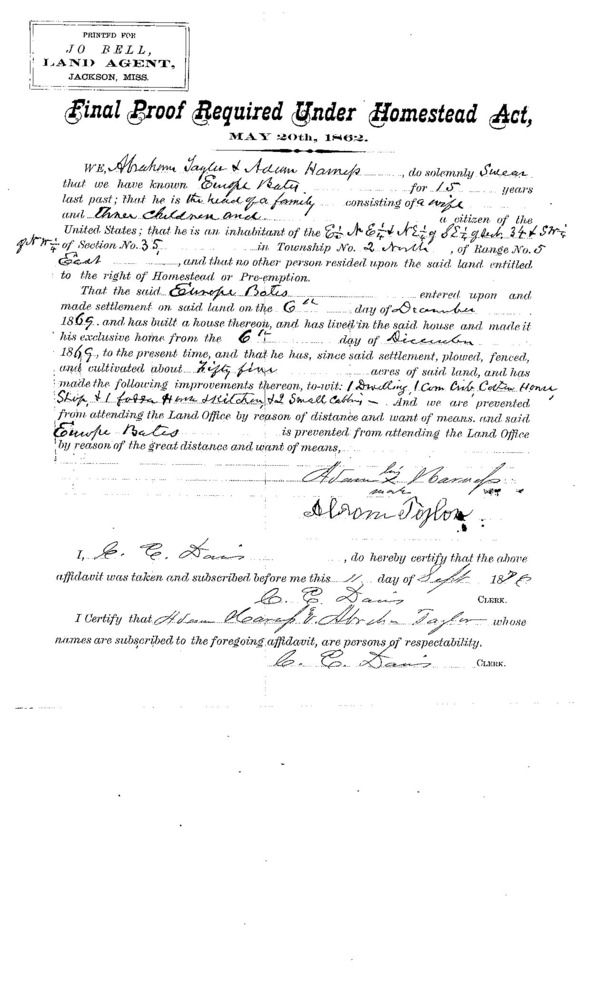 PRINTED FOR
JO BELL,
LAND AGENT,
JACKSON, MISS.
Final Proof Required Under Homestead Act,
MAY 20th, 1862.
WE, Abraham Taylor & Adam Harness, do solemnly Swear
that we have known Europe Bates for 15 years
last past; that he is the head of a family consisting of a wife
and three children and a citizen of the
United States; that he is an inhabitant of the E½ N E¼ & N E¼ of S E¼ of Sect. 34 & S W¼
of N W ¼ of Section No. 35 in Township No. 2 North, of Range No. 5
East, and that no other person resided upon the said land entitled
to the right of Homestead or Pre-emption.
That the said Europe Bates entered upon and
made settlement on said land on the 6th day of December
1869. and has built a house thereon, and has lived in the said house and made it
his exclusive home from the 6th day of December
1869, to the present time, and that he has, since said settlement, plowed, fenced,
and cultivated about Fifty five acres of said land, and has
made the following improvements thereon, to-wit: 1 Dwelling, 1 Corn Crib, Cotton House
Shop, & 1 fodder House & Kitchen, & 2 Small Cabins — And we are prevented
from attending the Land Office by reason of distance and want of means. and said
Europe Bates is prevented from attending the Land Office
by reason of the great distance and want of means,
Adam his x mark Harness
Abrom Taylor
I, C. C. Davis, do hereby certify that the above
affidavit was taken and subscribed before me this 11 day of Sept 187
C. C. Davis CLERK.
I Certify that Adam Harness & Abraham Taylor whose
names are subscribed to the foregoing affidavit, are persons of respectability.
C. C. Davis CLERK.